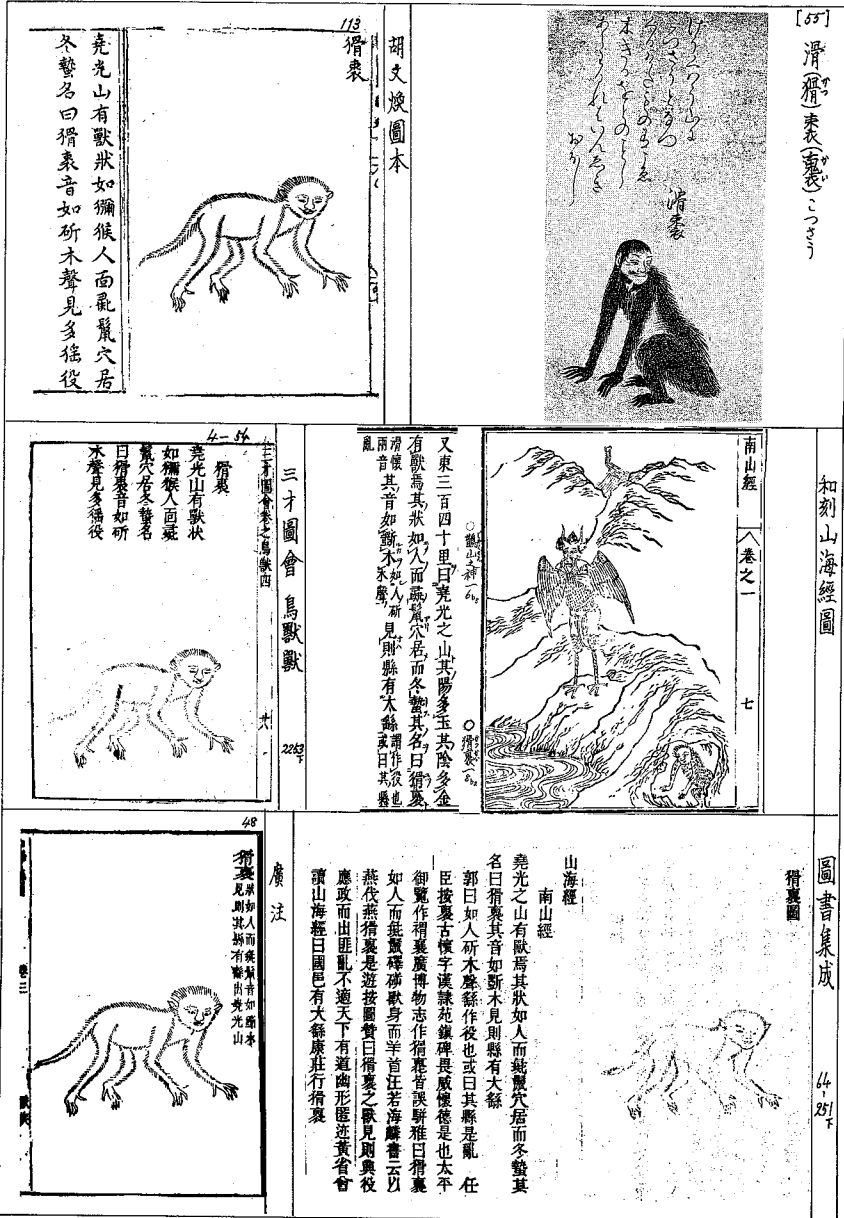 [55]
滑(猾)褢(裹)こつさう
かつ
かい
けうくわう山に
滑褢
胡文煥圖本
113
猾褢
堯光山有獸狀如獼猴人面彘鬣穴居
冬蟄名曰猾褢音如斫木聲見多徭役
和刻山海經圖
南山經
卷之一
七
○鸛山之神一
○猾褢
又東三百四十里曰堯光之山其陽多玉其陰多金
有獸焉其狀如人而彘鬣穴居而冬蟄其名曰猾褢
滑懷兩音其音如斲木如人斫木聲見則縣有大繇謂作役也或曰其縣亂
三才圖會 鳥獸獸
2253下
4-54
三才圖會卷之鳥獸四
廿八
猾褢
堯光山有獸狀
如獼猴人面彘
鬣穴居冬蟄名
曰猾褢音如斫
木聲見多徭役
圖書集成
64-251下
猾褢圖
山海經
南山經
堯光之山有獸焉其狀如人而彘鬣穴居而冬蟄其
名曰猾褢其音如斲木見則縣有大繇
郭曰如人斫木聲繇作役也或曰其縣是亂 任
臣按褢古懷字漢隸苑鎮碑畏威懷德是也太平
御覽作禂褢廣博物志作猾褢皆誤駢雅曰猾褢
如人而彘鬣磔磔獸身而羊首汪若海麟書云以
燕伐燕猾褢是遊按圖贊曰猾褢之獸見則興役
應政而出匪亂不適天下有道幽形匿迹黃省曾
讀山海經曰國邑有大繇康莊行猾褢
廣注
48
猾褢狀如人而彘鬣音如斲木
見則其縣有繇出堯光山
卷三